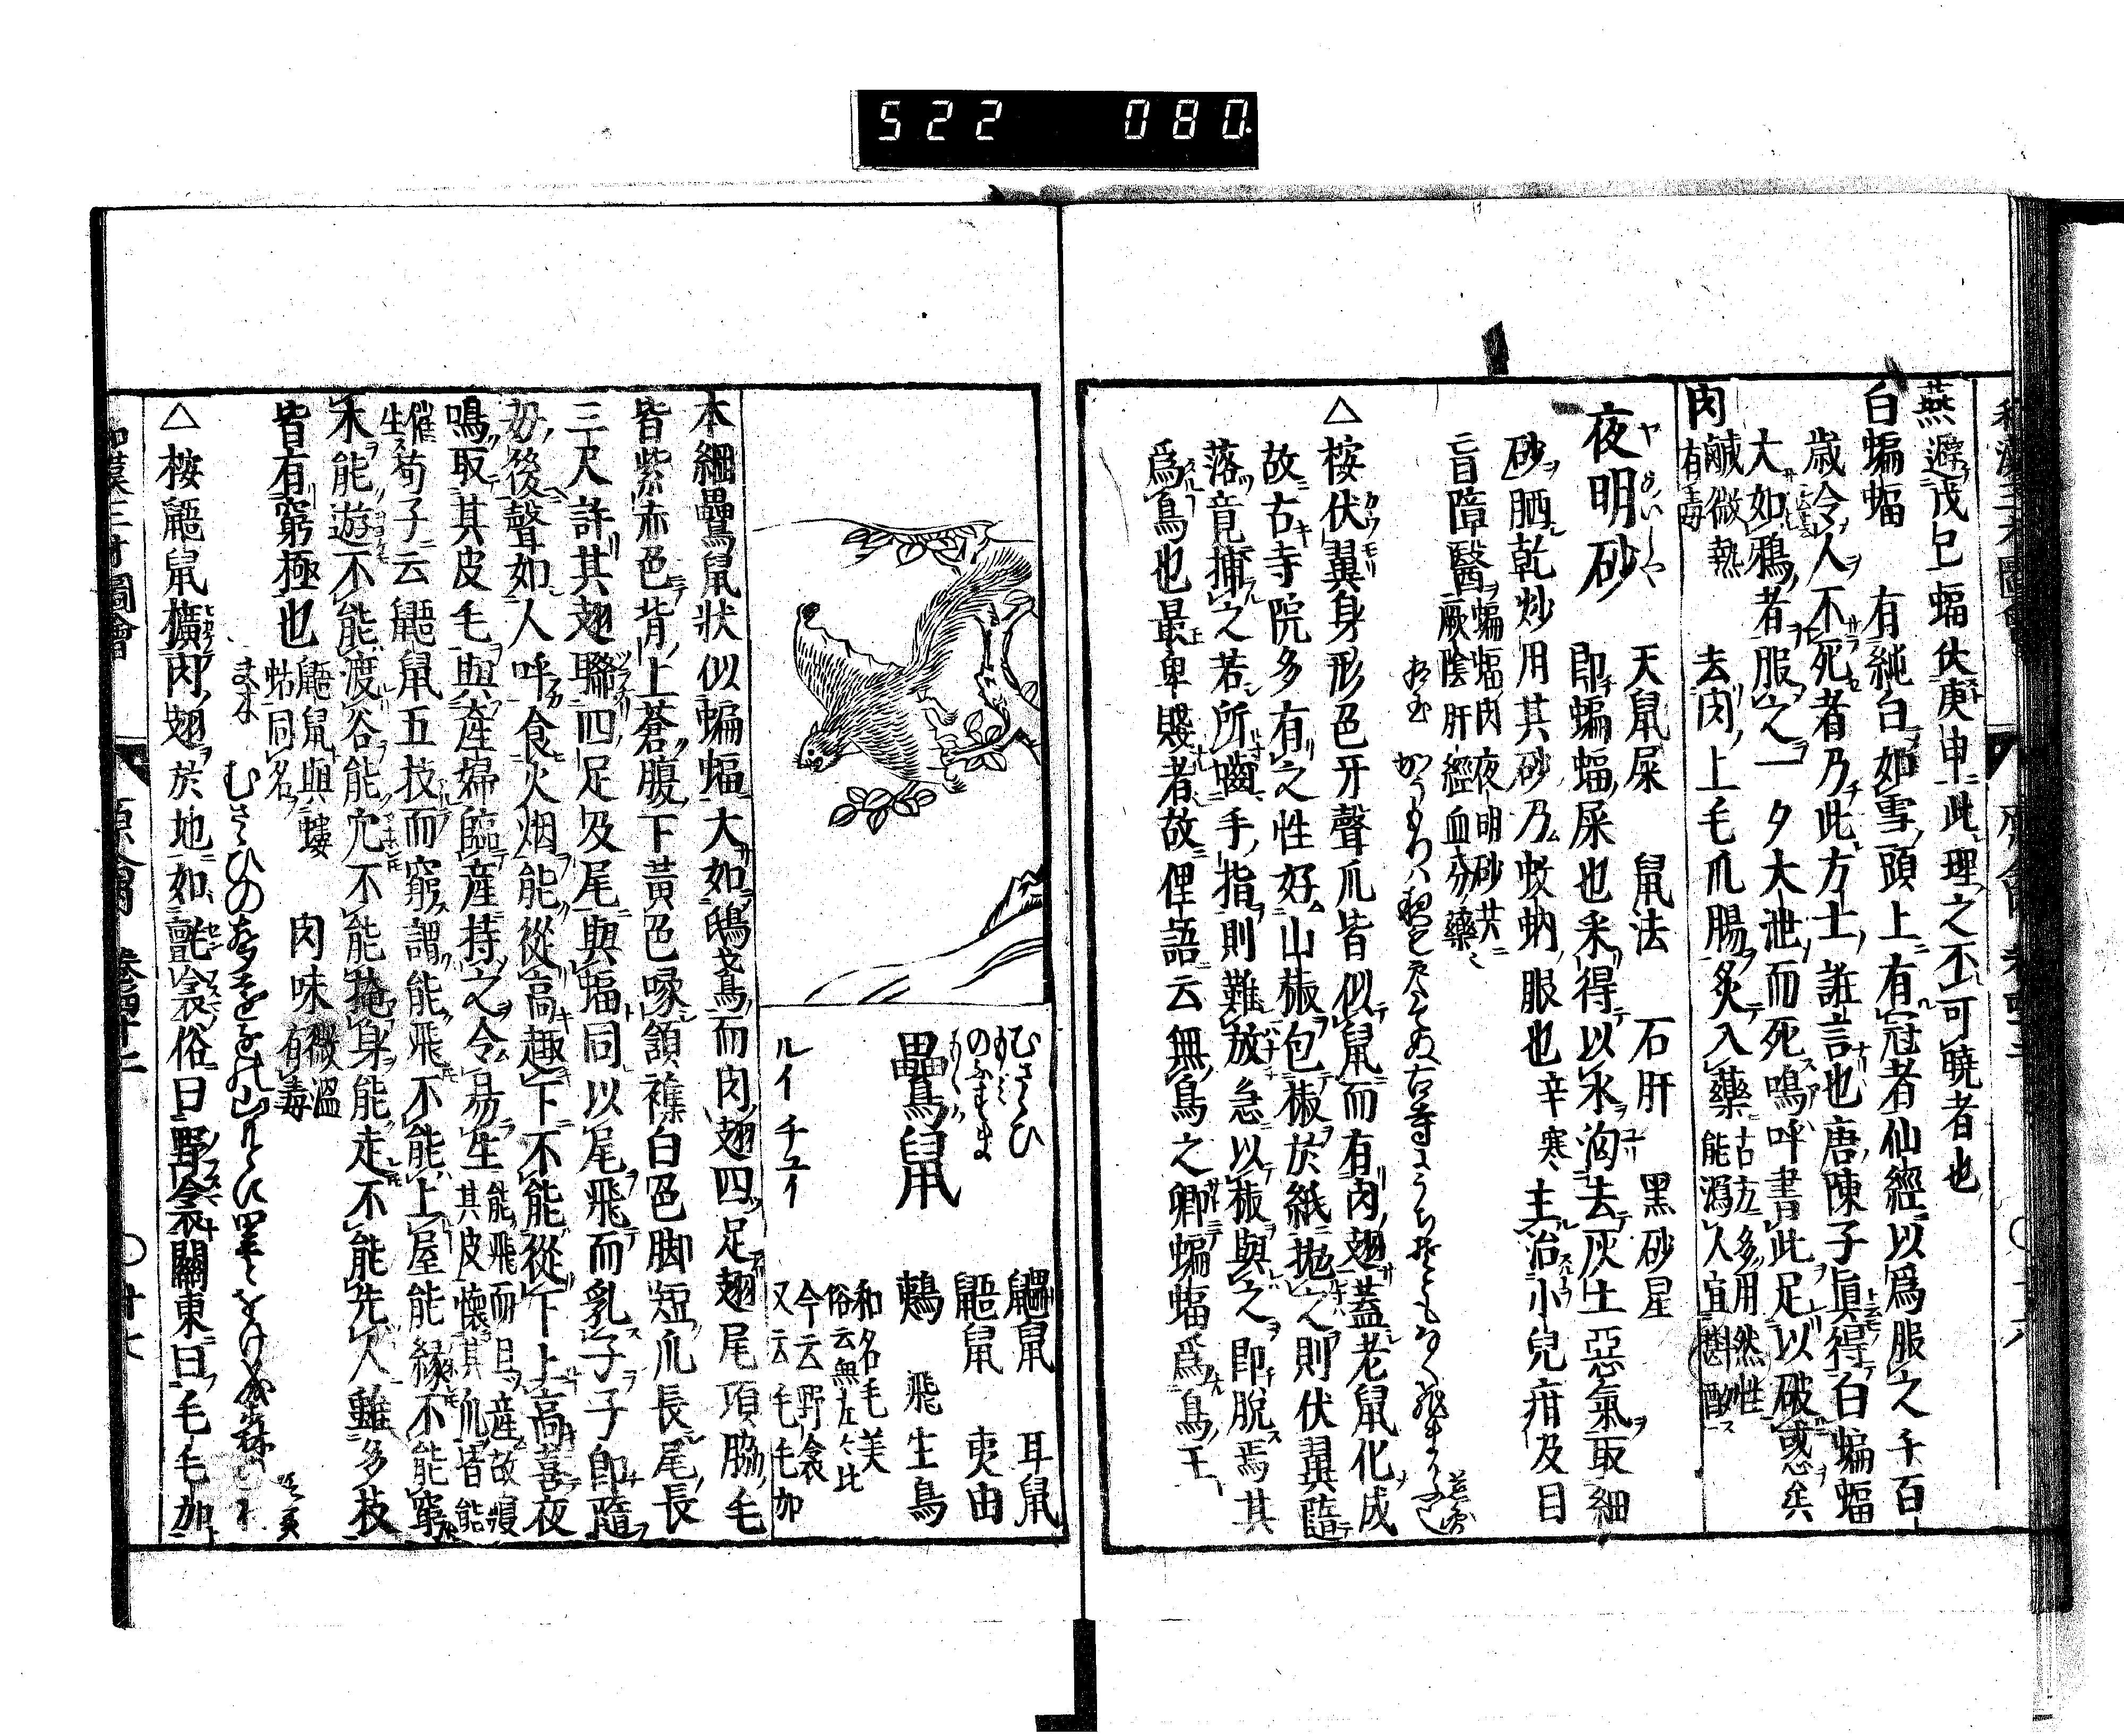 522 080
燕避戊己蝠伏庚申此理之不可曉者也
白蝙蝠 有純白如雪頭上有冠者仙經以爲服之千百
歳令人不死者乃此方士誑言也唐陳子眞得白蝙蝠
大如鴉者服之一夕大泄而死嗚呼書此足以破惑矣
肉 鹹微熱
有毒
去肉上毛爪腸炙入藥 古方多用然性
能瀉人宜斟酌
夜明砂 天鼠屎 鼠法 石肝 黑砂星
即蝙蝠屎也采得以水淘去灰土惡氣取細
砂晒乾炒用其砂乃蚊蚋眼也辛寒主治小兒疳及目
盲障翳 蝙蝠肉夜明砂共
厥陰肝經血分藥
△桉伏翼身形色牙聲爪皆似鼠而有肉翅蓋老鼠化成
故古寺院多有之性好山椒包椒於紙抛之則伏翼隨
落竟捕之若所嚙手指則難放急以椒與之即脱焉其
爲鳥也最卑賤者故俚語云無鳥之郷蝙蝠爲鳥王
むささひ
ももくわ
のふすま
鸓鼠
ルイ チユイ
鼺鼠 耳鼠
鼯鼠 夷由
鷞 飛生鳥
和名毛美
俗云無左々比
今云野衾
又云毛毛加
本綱鸓鼠狀似蝙蝠大如鴟鳶而肉翅四足翅尾項脇毛
皆紫赤色背上蒼腹下黃色喙頷襍白色脚短爪長尾長
三尺許其翅聯四足及尾與蝠同以尾飛而乳子子即隨
母後聲如人呼食火烟能從高趣下不能從下上高喜夜
鳴取其皮毛與產婦臨產持之令易生 能飛而且產故寝
其皮懷其爪皆能
催
生
荀子云鼯鼠五技而窮謂能飛不能上屋能緣不能窮
木能遊不能渡谷能穴不能掩身能走不能先人雖多技
皆有窮極也 鼯鼠與螻
蛄同名
肉味 微溫
有毒
△桉鼯鼠擴肉翅於地如氊衾俗曰野衾關東曰毛毛加